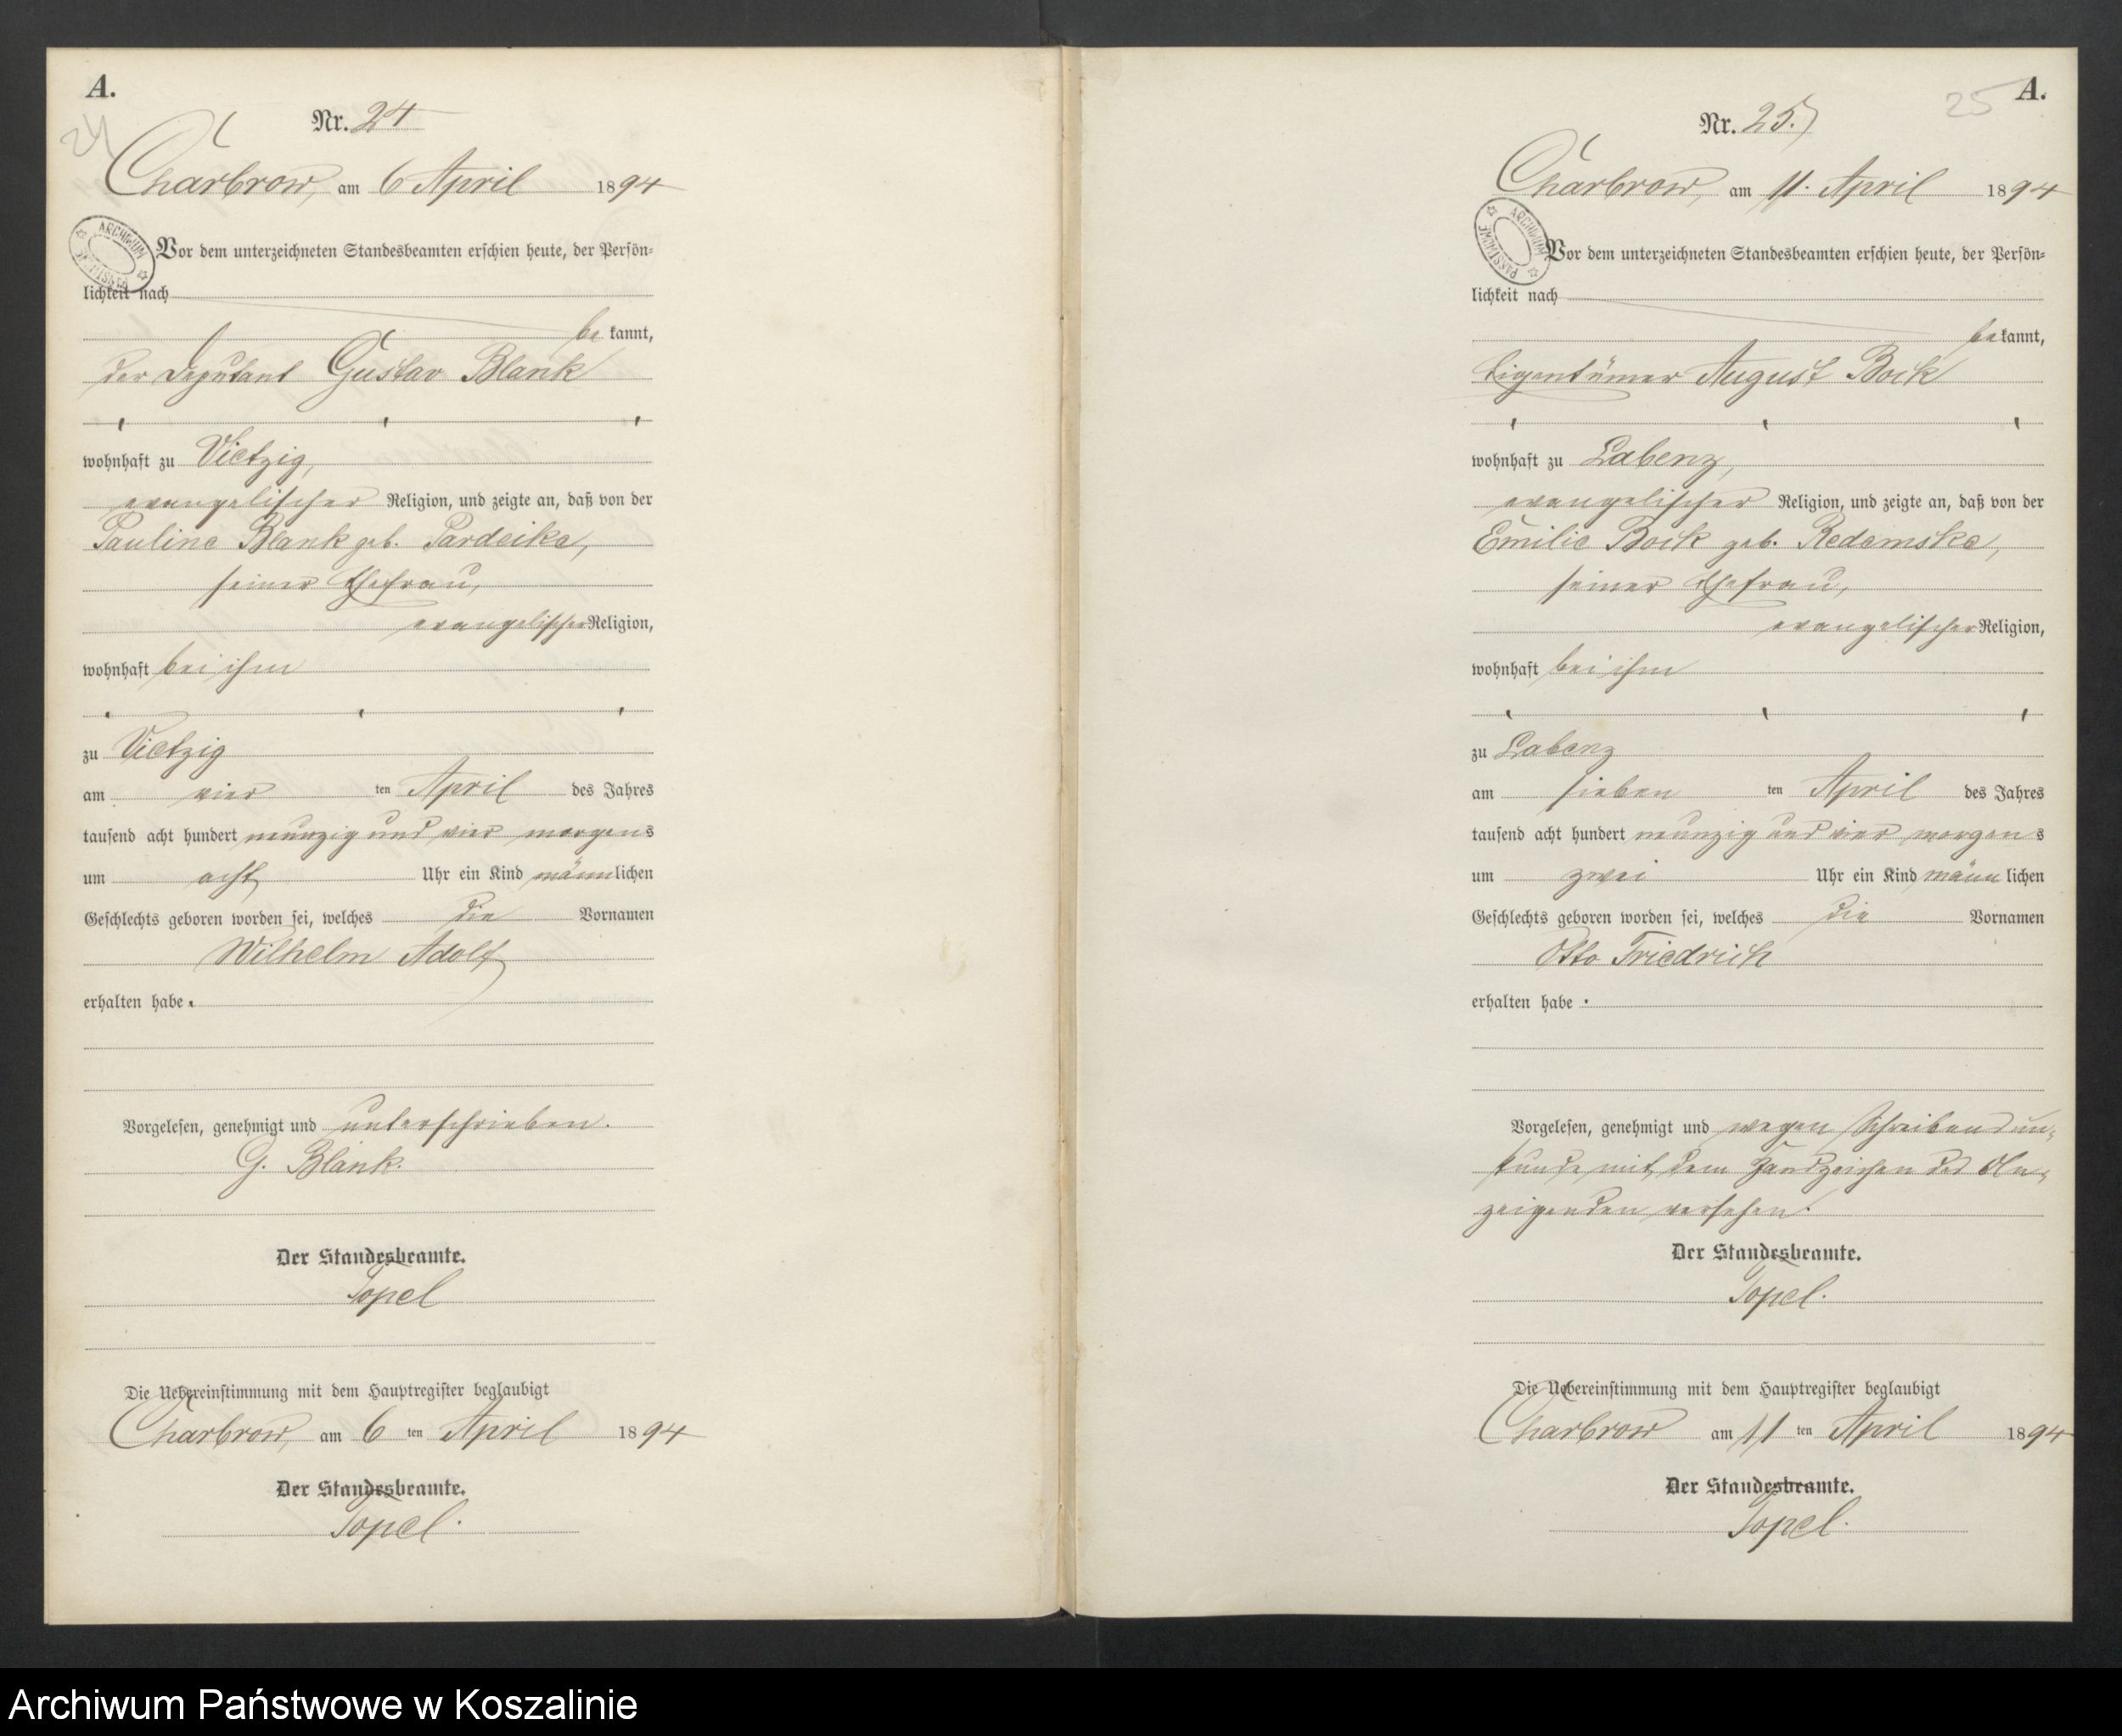 A.
24
Nr. 24
Charbrow, am 6 April 1894
ARCHIWUM PAŃSTWOWE
Vor dem unterzeichneten Standesbeamten erschien heute, der Persön-
lichkeit nach
be kannt,
der Deputant Gustav Blank
wohnhaft zu Vietzig,
evangelischer Religion, und zeigte an, daß von der
Pauline Blank geb. Pardeike,
seiner Ehefrau,
evangelischer Religion,
wohnhaft bei ihm
zu Vietzig
am vier ten April des Jahres
tausend acht hundert neunzig und vier morgens
um acht Uhr ein Kind männlichen
Geschlechts geboren worden sei, welches die Vornamen
Wilhelm Adolf
erhalten habe.
Vorgelesen, genehmigt und unterschrieben.
G. Blank.
Der Standesbeamte.
Topel
Die Uebereinstimmung mit dem Hauptregister beglaubigt
Charbrow, am 6 ten April 1894
Der Standesbeamte.
Topel.
A.
25
Nr. 25.
Charbrow, am 11. April 1894
ARCHIWUM PAŃSTWOWE
Vor dem unterzeichneten Standesbeamten erschien heute, der Persön-
lichkeit nach
bekannt,
Eigentümer August Bock
wohnhaft zu Labenz,
evangelischer Religion, und zeigte an, daß von der
Emilie Bock geb. Redemske,
seiner Ehefrau,
evangelischer Religion,
wohnhaft bei ihm
zu Labenz
am sieben ten April des Jahres
tausend acht hundert neunzig und vier morgens
um zwei Uhr ein Kind männlichen
Geschlechts geboren worden sei, welches die Vornamen
Otto Friedrich
erhalten habe.
Vorgelesen, genehmigt und wegen Schreibensun-
kunde mit dem Handzeichen des An-
zeigenden versehen.
Der Standesbeamte.
Topel.
Die Uebereinstimmung mit dem Hauptregister beglaubigt
Charbrow am 11 ten April 1894
Der Standesbeamte.
Topel.
Archiwum Państwowe w Koszalinie